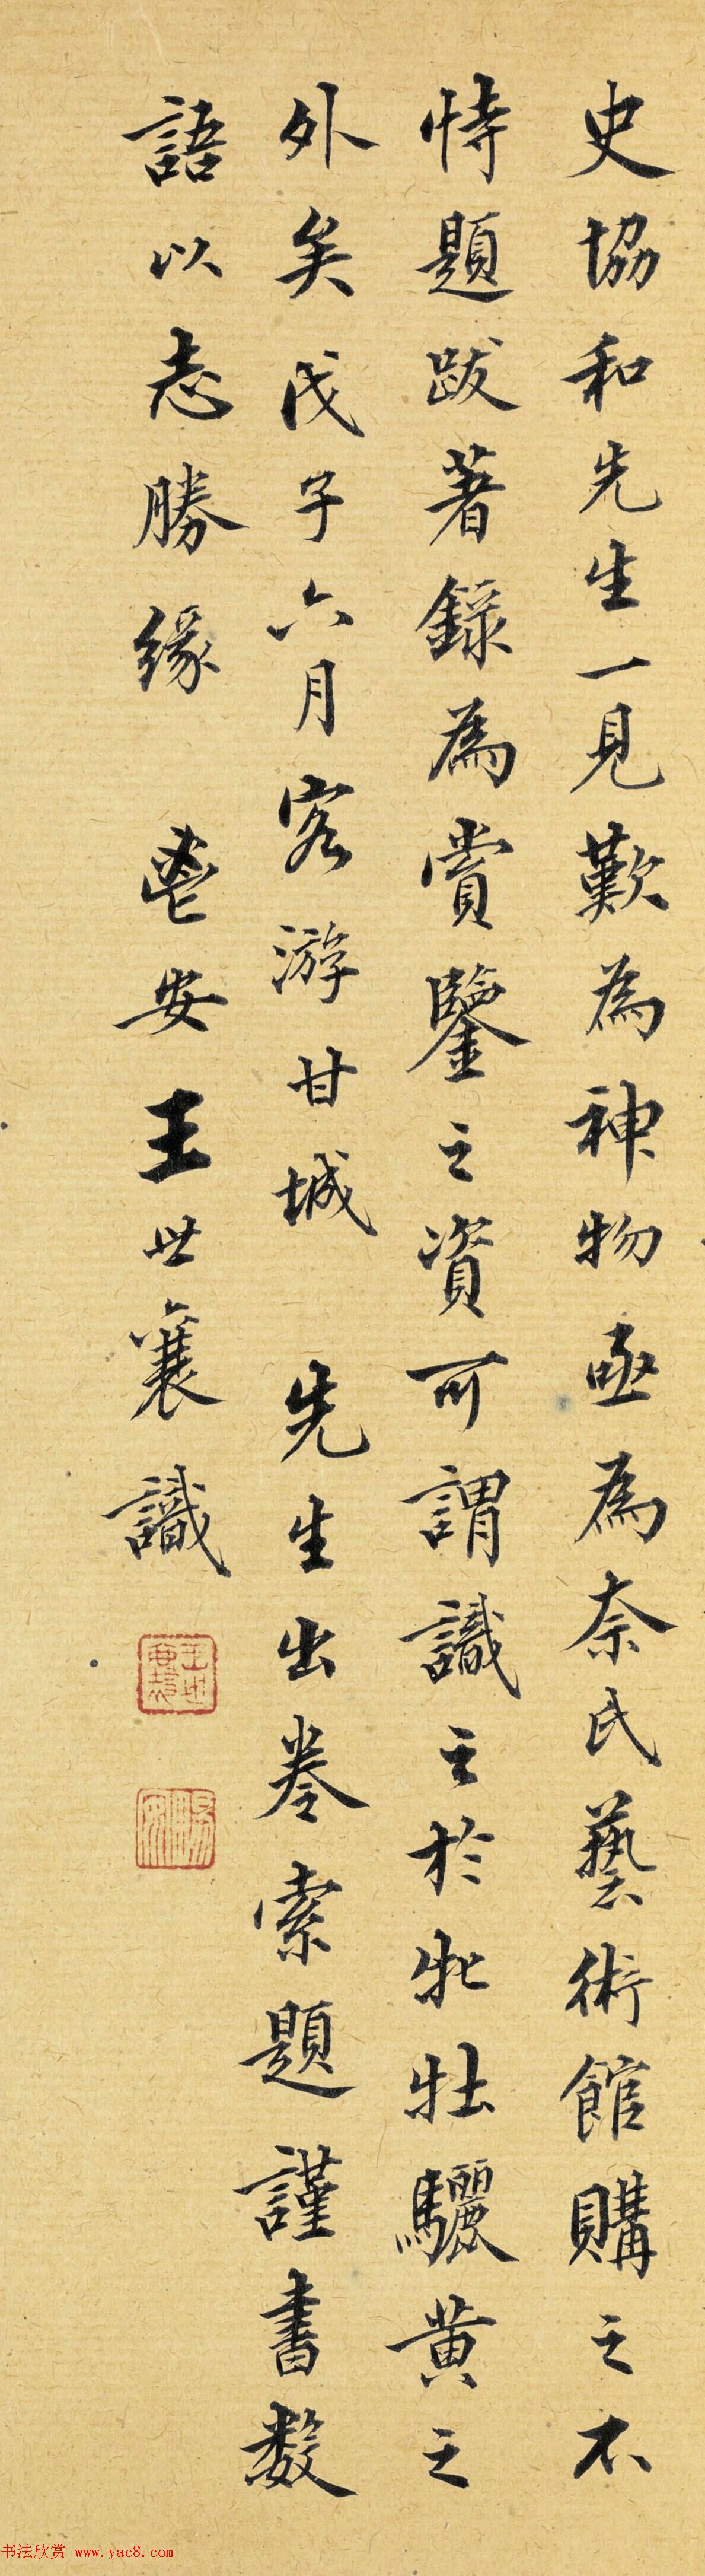 史協和先生一見歎為神物亟為奈氏藝術館購之不
恃題跋著錄為賞鑒之資可謂識之於牝牡驪黃之
外矣戊子六月客游甘城 先生出卷索題謹書數
語以志勝緣 鬯安王世襄識
王世襄
书法欣赏 www.yac8.com